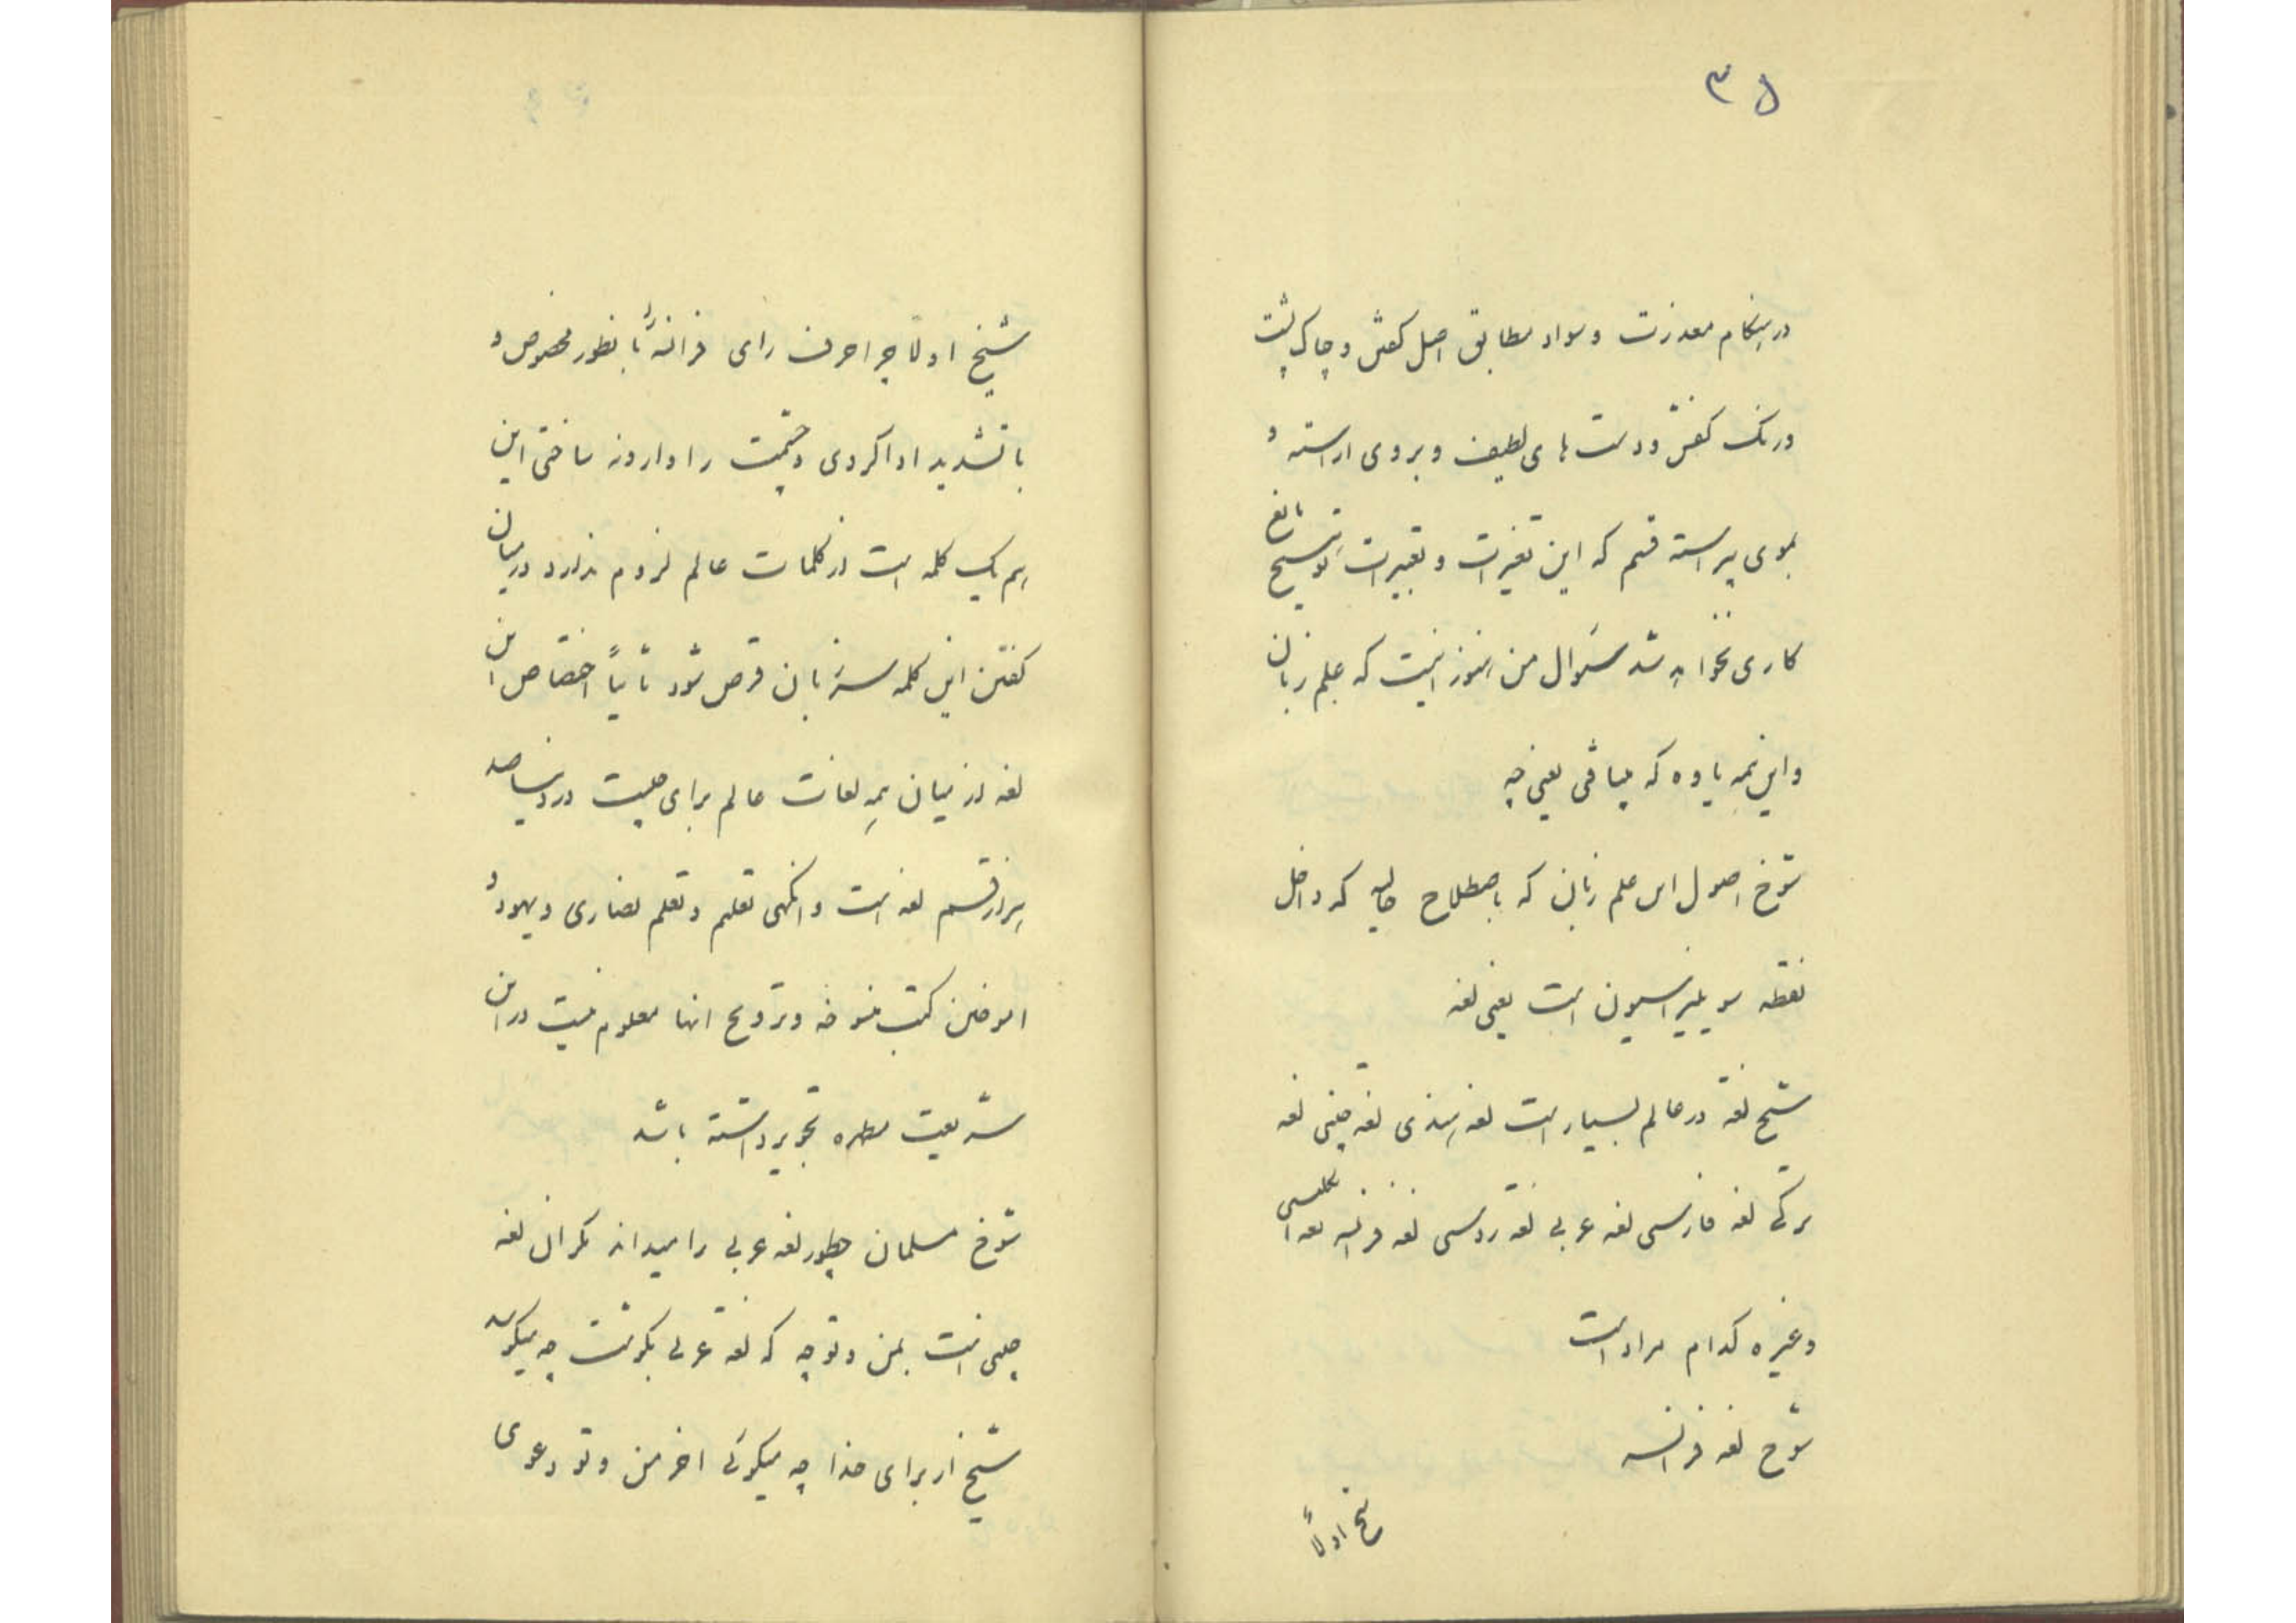 ۳۵
در هنگام معذرت و سواد مطابق اصل کفش و چاک پشت
و رنک کفش و دست های لطیف و بروی اراسته و
بموی پیراسته قسم که این تغیرات و تعبیرات مانع
کاری نخواهد شد سئوال من هنوز اینست که علم زبان
و این همه یاوه که میبافی یعنی چه
شوخ اصول اس علم زبان که باصطلاح حالیه که داخل
نقطه سویلیزاسیون است یعنی لغه
شیخ لغة در عالم بسیار است لغه هندی لغه چینی لغه
ترکی لغه فارسی لغه عربی لغة روسی لغه فرانسه لغه انکلیسی
و غیره کدام مراد است
شوخ لغه فرانسه
شیخ اولاً
شیخ اولاً چرا حرف رای فرانسه را بانطور مخصوص و
با تشدید ادا کردی و چشمت را وارونه ساختی این
هم یک کلمه است از کلمات عالم لزوم ندارد در میان
کفتن این کلمه سر زبان قرص شود ثانیاً اختصاص این
لغه از میان همه لغات عالم برای چیست در دنیا صد
هزار قسم لغه است وانکهی تعلیم و تعلم نصاری و یهود و
اموختن کتب منسوخه و ترویج انها معلوم نیست در این
شریعت مطهره تجویز داشته باشد
شوخ مسلمان چطور لغه عربی را میداند مکر ان لغه
چیست بمن و تو چه که لغة عربی بکوشت چه میکوید
شیخ از برای خدا چه میکوئی اخر من و تو دعوی